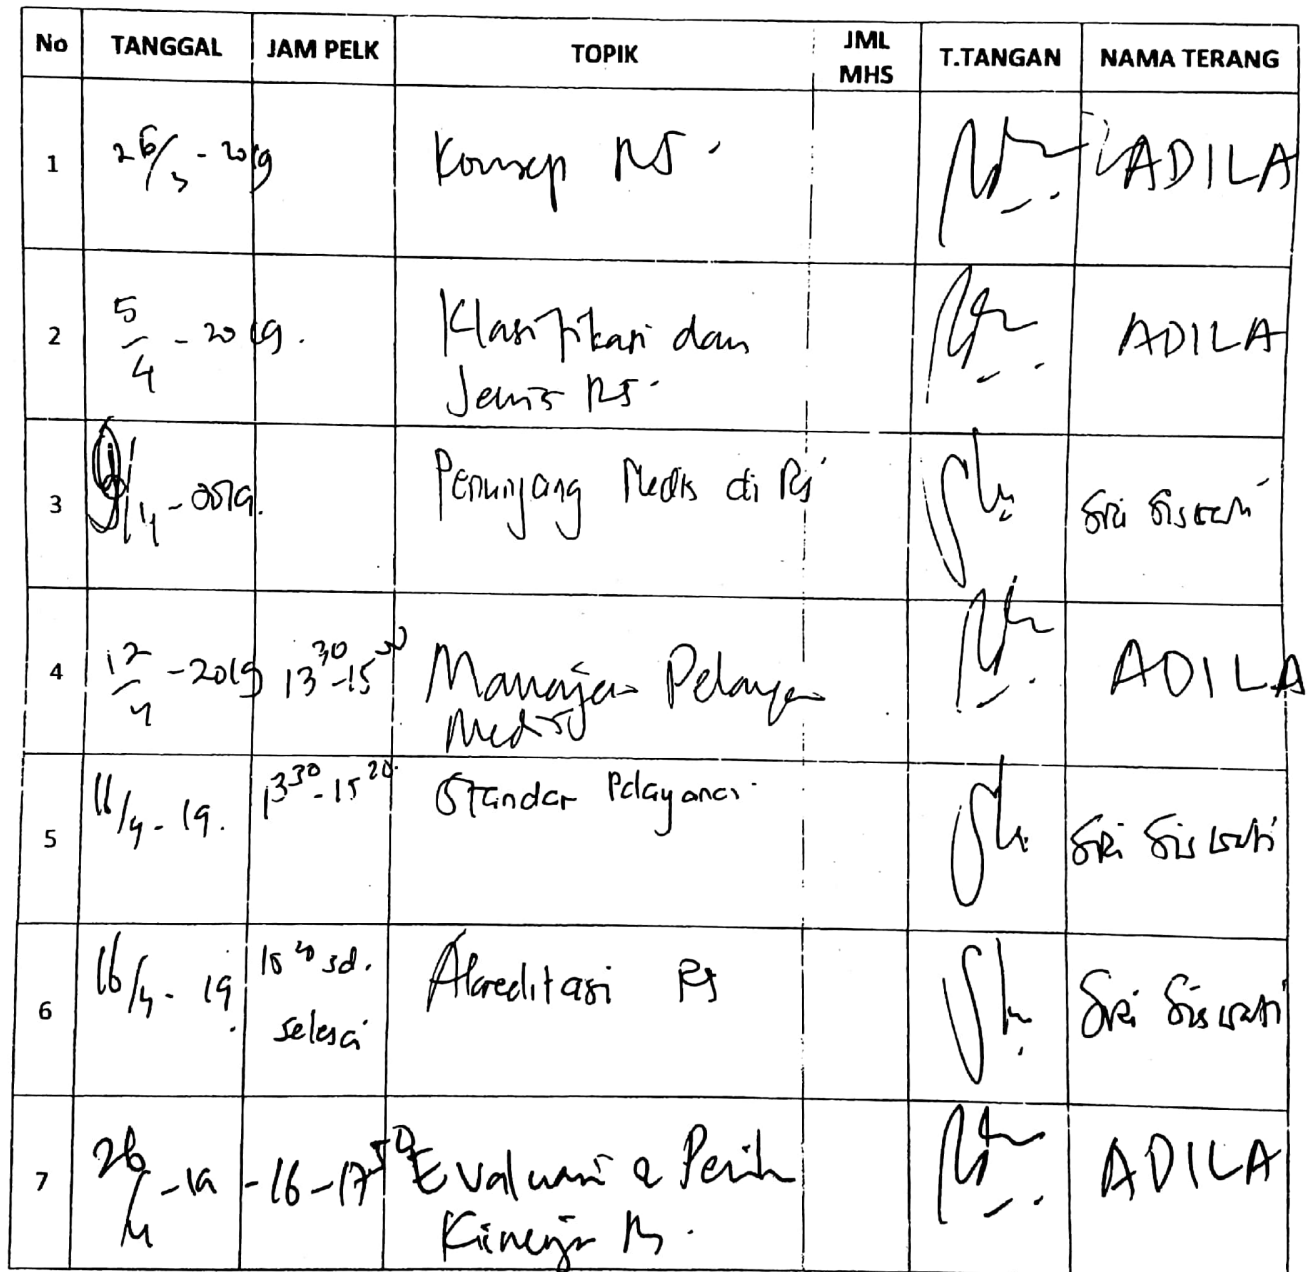 No TANGGAL JAM PELK TOPIK JML MHS T.TANGAN NAMA TERANG
1 26/3 - 2019 Konsep RS. ADILA
2 5/4 - 2019. Klasifikasi dan ADILA
Jenis RS.
3 /4 - 2019. Penunjang Medis di RS Sri Siswati
4 12/4 - 2019 13 30 - 15 Manajen Pelayan ADILA
Medis
5 16/4 - 19. 13 30 - 15 20. Standar Pelayanan. Sri Siswati
6 16/4 - 19. 15 20 sd. Akreditasi RS Sri Siswati
selesai
7 26/4 - 19 - 16 - 17 50 Evaluasi & ADILA
Kinerja RS.